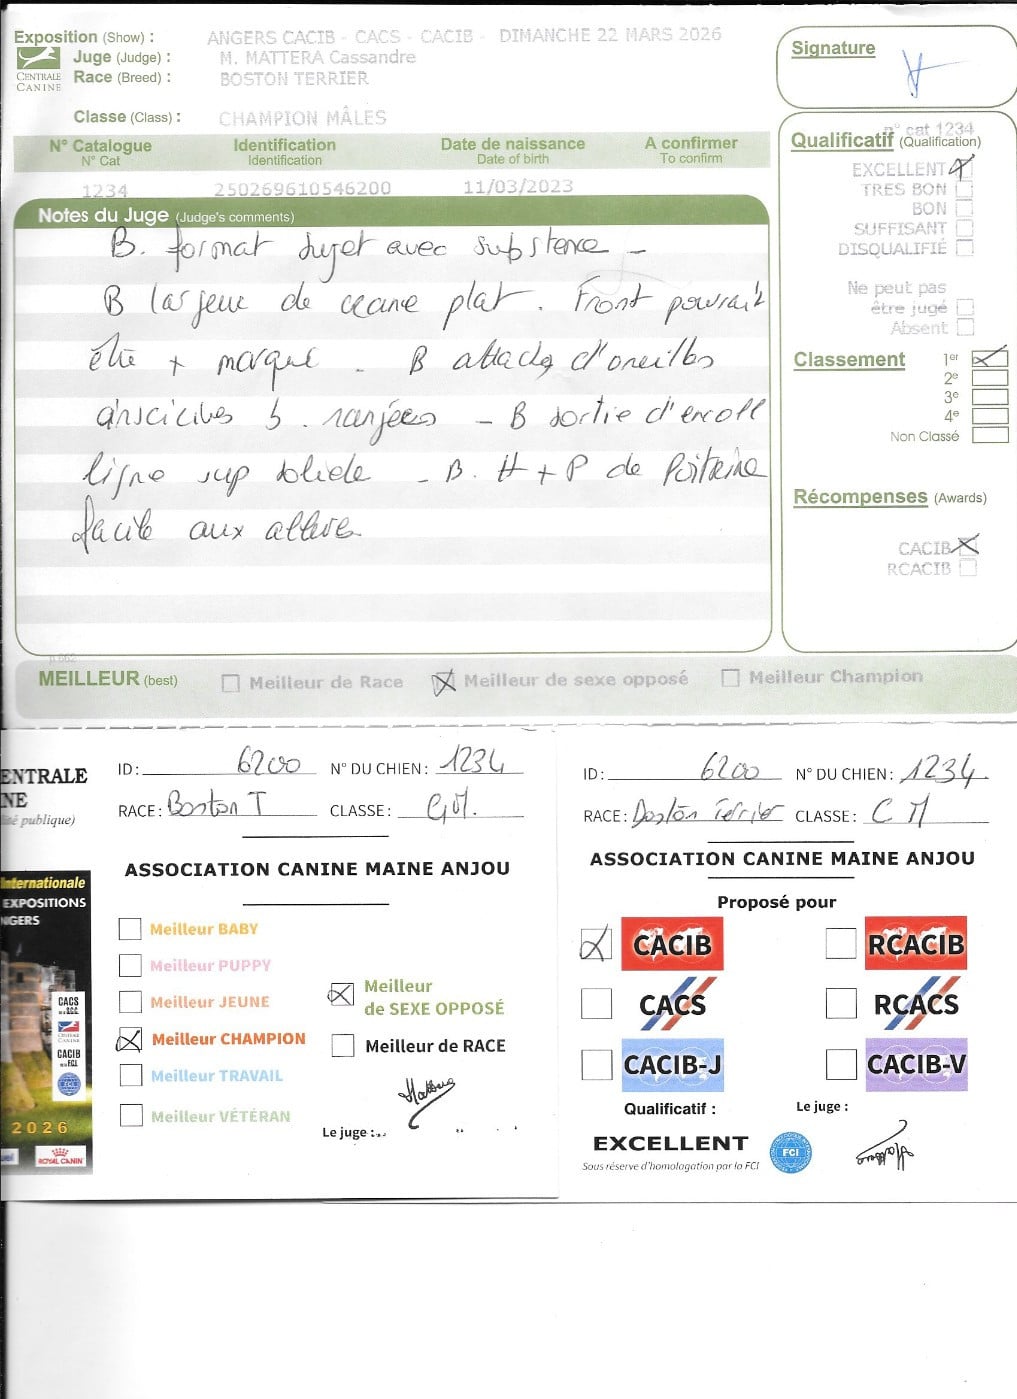 Exposition (Show) : ANGERS CACIB - CACS - CACIB - DIMANCHE 22 MARS 2026
CENTRALE CANINE
Juge (Judge) : M. MATTERA Cassandre
Race (Breed) : BOSTON TERRIER
Classe (Class) : CHAMPION MÂLES
Signature
N° Catalogue Identification Date de naissance A confirmer
N° Cat Identification Date of birth To confirm
1234 250269610546200 11/03/2023
n° cat 1234
Qualificatif (Qualification)
EXCELLENT
TRES BON
BON
SUFFISANT
DISQUALIFIÉ
Ne peut pas
être jugé
Absent
Classement 1er
2e
3e
4e
Non Classé
Récompenses (Awards)
CACIB
RCACIB
Notes du Juge (Judge's comments)
B. format sujet avec substence -
B largeur de crane plat. Front pourrait
être + marqué - B attache d'oreilles
B sortie d'encoll
ligne sup solide - B. H + P de Poitrine
facile aux allures
MEILLEUR (best) Meilleur de Race Meilleur de sexe opposé Meilleur Champion
ENTRALE
NE
ité publique)
Internationale
EXPOSITIONS
NGERS
CACS
CENTRALE
CANINE
CACIB
FCI
2026
ROYAL CANIN
ID: 6200 N° DU CHIEN : 1234
RACE: Boston T CLASSE:
ASSOCIATION CANINE MAINE ANJOU
Meilleur BABY
Meilleur PUPPY
Meilleur JEUNE
Meilleur CHAMPION
Meilleur TRAVAIL
Meilleur VÉTÉRAN
Meilleur
de SEXE OPPOSÉ
Meilleur de RACE
Le juge :
ID: 6200 N° DU CHIEN : 1234
RACE: Boston Terrier CLASSE: C M
ASSOCIATION CANINE MAINE ANJOU
Proposé pour
CACIB RCACIB
CACS RCACS
CACIB-J CACIB-V
Qualificatif : Le juge :
EXCELLENT FCI
Sous réserve d'homologation par la FCI